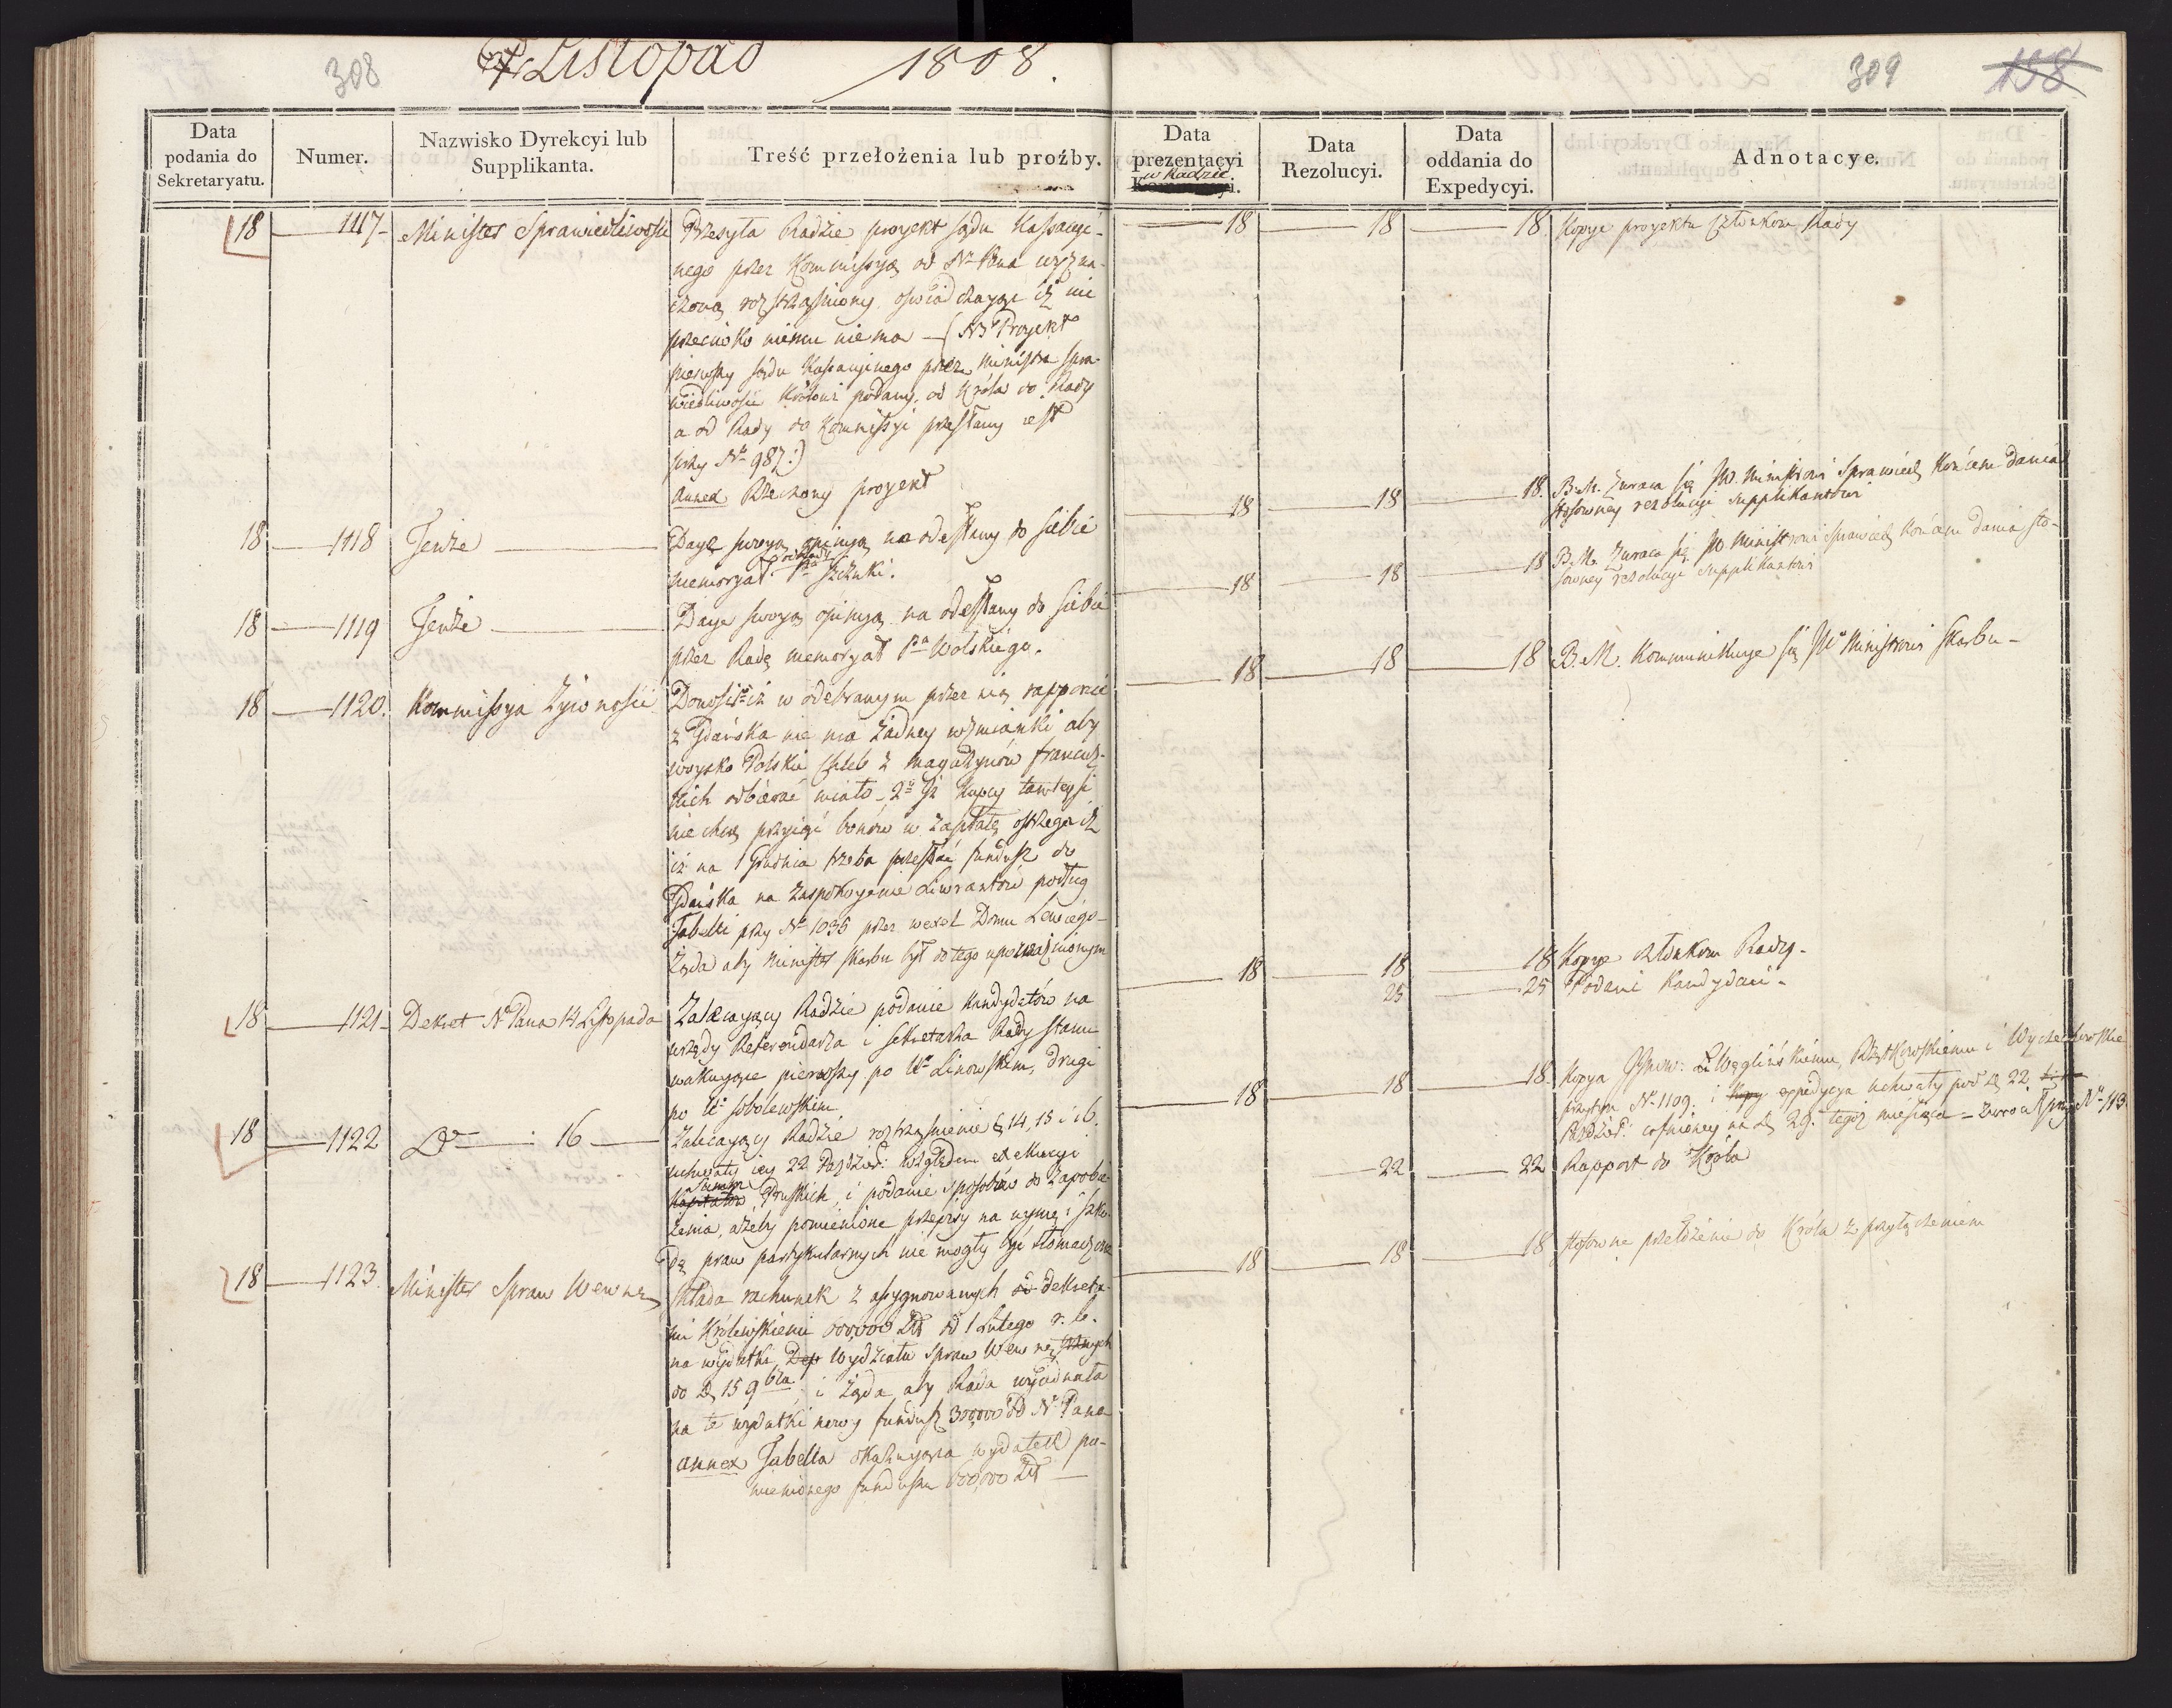 308
Listopad 1808.
309
158
Data podania do Sekretaryatu.
Numer.
Nazwisko Dyrekcyi lub Supplikanta.
Treść przełożenia lub proźby.
Data prezentacyi w Radzie
Data Rezolucyi.
Data oddania do Expedycyi.
Adnotacye.
18 1117 Minister Sprawiedliwości
Przesyła Radzie proyekt sądu Kassacyi-
nego przez Kommissyą od Nº Pana wyzna-
czoną roztrząśniony oświadczaiąc iż nic
przeciwko niemu niema — (NB Proyekt
pierwszy sądu Kassacyinego przez Ministra spra-
wiedliwości Królowi podany, od Króla do Rady
a od Rady do Kommissyi przesłany iest
przy Nº 987.)
annex Rzeczony proyekt
18 18 18. Kopye proyektu Członkom Rady
18 1118 Tenże
Daye swoyą opinyą na odesłany do siebie
memoryał Pa Szczuki.
18 18 18. B.M. Zwraca się JW. Ministrowi Sprawiedl. końcem dania
stosowney rezolucyi supplikantowi
18 1119 Tenże
Daye swoyą opinyą na odesłany do siebie
przez Radę memoryał Pa Wolskiego.
18 18 18 B.M. Zwraca się JW. Ministrowi Sprawiedl. końcem dania sto-
sowney rezolucyi supplikantowi
18 1120. Kommissya Żywności
Donosi 1º iż w odebranym przez nią rapporcie
z Gdańska nie ma żadney wzmianki aby
woysko Polskie chleb z magazynów francuz-
kich odbierać miało — 2º Iż kupcy tamteysi
nie chcą przyiąć bonów w zapłatę ostrzega iż
iż na 1 Grudnia trzeba przesłać fundusz do
Gdańska na zaspokojenie Liwerantów podług
Tabelli przy Nº 1035 przez wexel Domu
Żąda aby Minister Skarbu był do tego upoważnionym
18 18 18 B.M. Kommunikuie się JW. Ministrowi Skarbu —
18 1121 Dekret Nº Pana 14 Listopada
Zalecaiący Radzie podanie Kandydatów na
urzędy Referendarza i Sekretarza Rady Stanu
wakuiące pierwszy po W. Linowskim, drugi
po W. Sobolewskim
18 18 18 Kopye członkom Rady.
25 25 Podani Kandydaci.
18 1122 Dº 16
Zalecaiący Radzie roztrząśnienie § 14, 15 i 16.
uchwały iey 22 Paźdź: względem exekucyi
Summ Pruskich, i podanie sposobów do zapobie-
żenia, ażeby pomienione przepisy na uymę i szko-
dę praw partykularnych nie mogły być tłomaczone
18 18 18. Kopya Węgleńskiemu, i
przytym Nº 1109. i expedycya uchwały pod d. 22.
Paźdź: cofnioney na d. 29. tegoż miesiąca —
22 22 Rapport do Króla
18 1123. Minister Spraw Wewnę
Składa rachunek z assygnowanych dekreta-
mi Królewskiemi 600,000 Zł od 1 Lutego r. b.
na wydatki Wydziału Spraw Wewnę
do d. 15 9bra i żąda aby Rada wyiednała
na te wydatki nowy fundusz 300,000 od Nº Pana
annex Tabella okazuiąca wydatek po-
mienionego funduszu 600,000 Zł —
18 18 18 Stosowne przełożenie do Króla z przyłączeniem